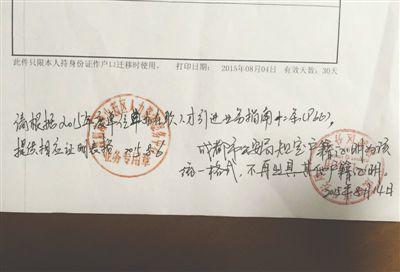 此件只限本人持身份证作户口迁移时使用。 打印日期：2015年08月04日 有效天数：30天
请根据2015年度单位 在职人才引进业务指南 (P60),
提供相应证明表格 2015.8.6
业务专用章
成都市公安局规定户籍证明为该
统一格式，不再出具其他户籍证明。
2015年8月14日